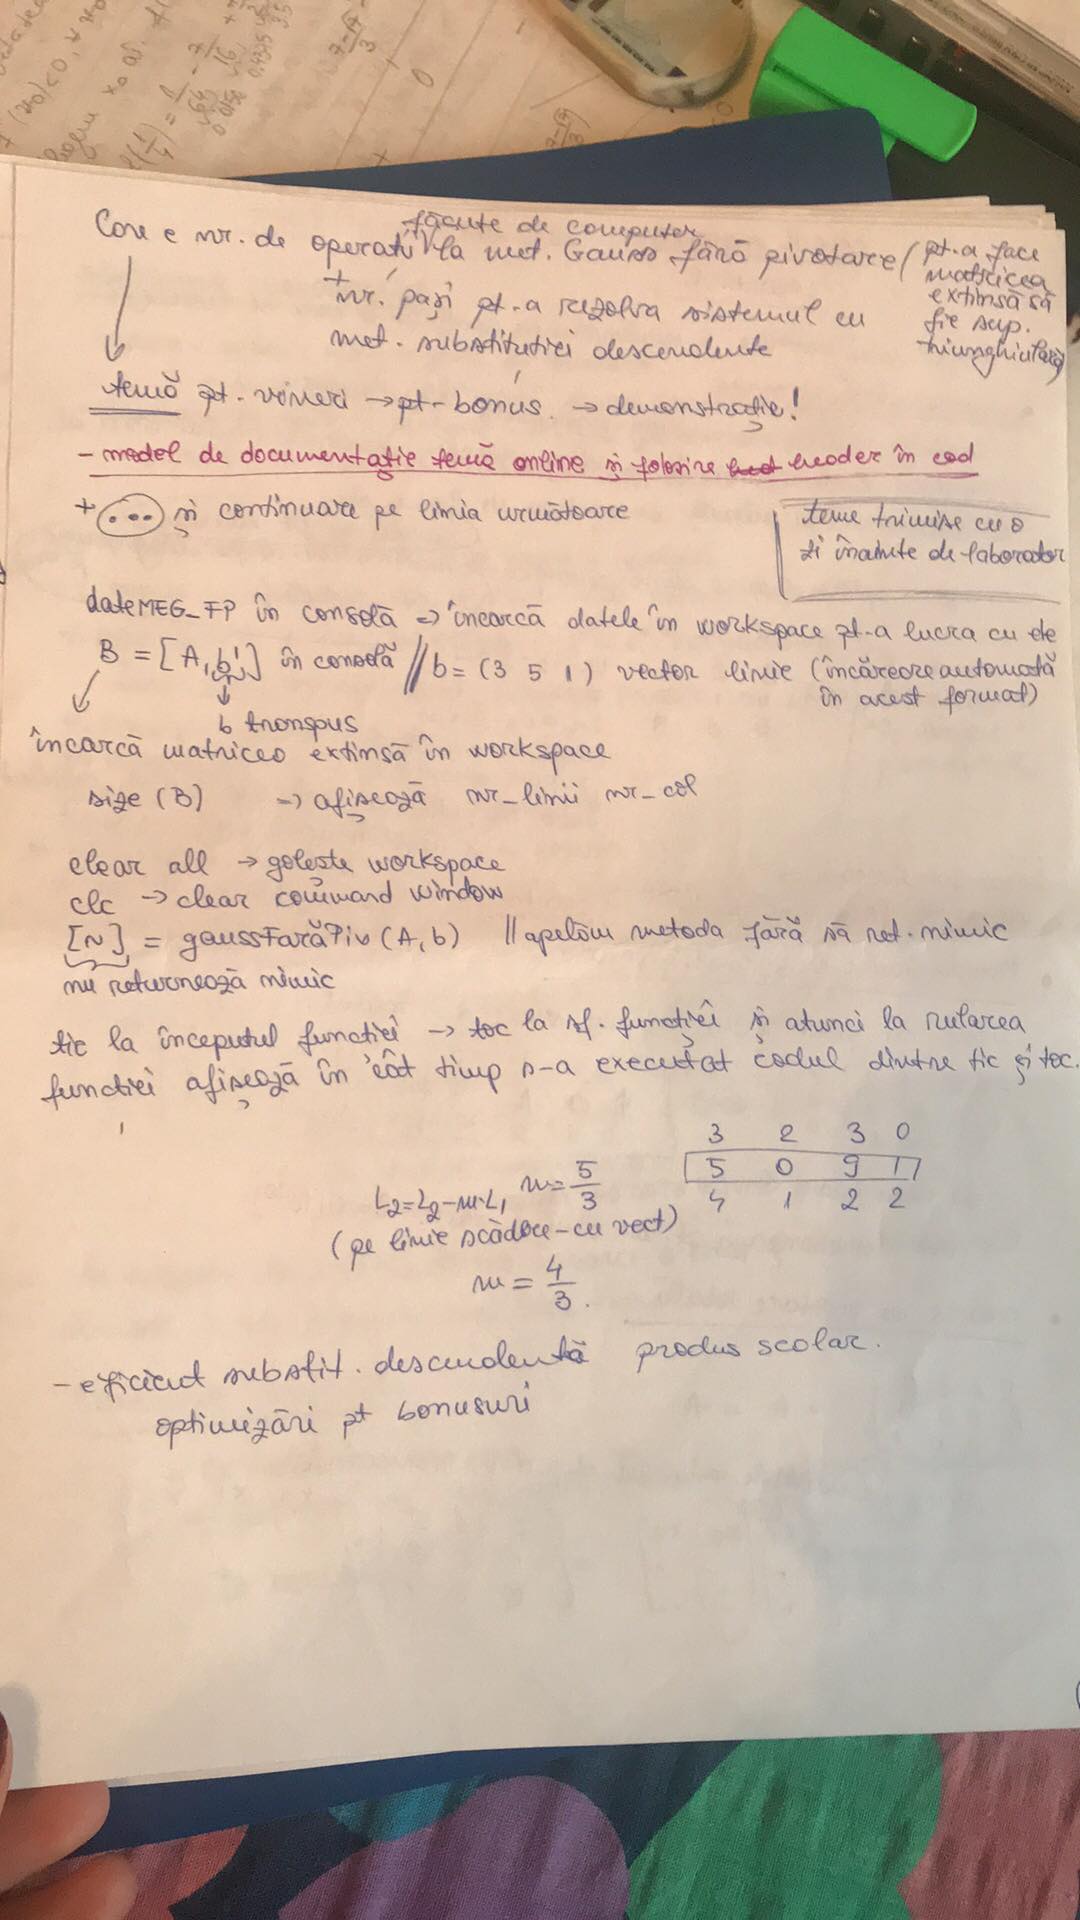 Care e nr. de operații făcute de computer la met. Gauss fără pivotare (pt. a face matricea extinsă să fie sup. triunghiulară)
+ nr. pași pt. a rezolva sistemul cu
met. substituției descendente
temă pt. vineri → pt. bonus. → demonstrație!
- model de documentație temă online și folosire header în cod
+ (...) și continuare pe linia următoare
teme trimise cu o
zi înainte de laborator
dateMEG_FP în consolă => încarcă datele în workspace pt. a lucra cu ele
B = [A, b'] în consolă // b = (3 5 1) vector linie (încărcare automată
în acest format)
b transpus
încarcă matricea extinsă în workspace
size (B) => afișează nr_linii nr_col
clear all → golește workspace
clc → clear command window
[~] = gaussFarăPiv (A, b) // apelăm metoda fără să ret. nimic
nu returnează nimic
tic la începutul funcției → toc la sf. funcției și atunci la rularea
funcției afișează în cât timp s-a executat codul dintre tic și toc.
3 2 3 0
5 0 9 1
4 1 2 2
L2=L2-m·L1 m=5/3
(pe linie scădere-cu vect)
m = 4/3.
- eficient substit. descendentă produs scalar.
optimizări pt bonusuri